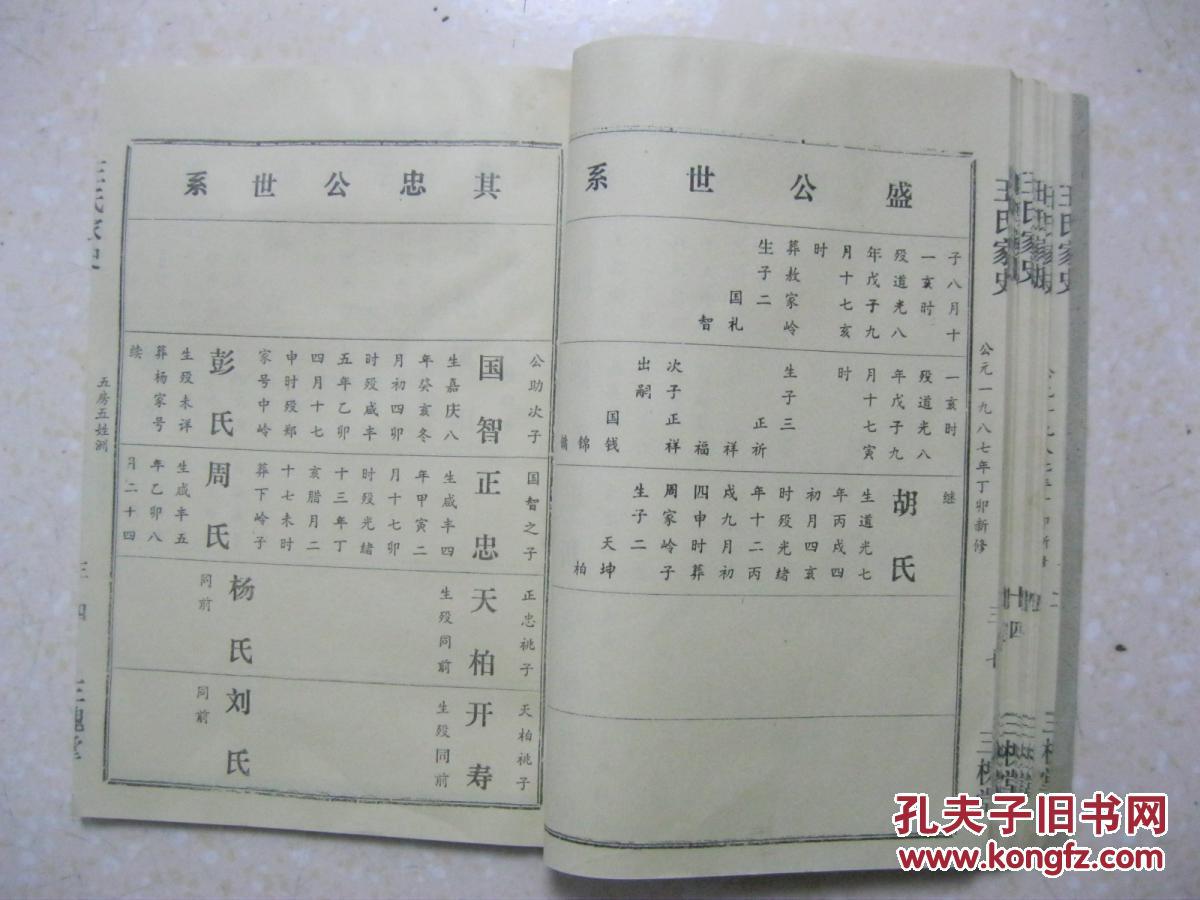 盛公世系
子八月十
一亥时
殁道光八
年戊子九
月十七亥
时
葬敖家岭
生子二
国礼
智
一亥时
殁道光八
年戊子九
月十七寅
时
生子三
正祈
祥
福
次子正祥
出嗣
国钱
锦
继
胡氏
生道光七
年丙戌四
初月四亥
时殁光绪
年十二丙
戌九月初
四申时葬
周家岭子
生子二
天坤
柏
公元一九八七年丁卯新修
王氏家史
三槐堂
其忠公世系
公助次子
国智
生嘉庆八
年癸亥冬
月初四卯
时殁咸丰
五年乙卯
四月十七
申时殁郑
家号中岭
彭氏
生殁未详
葬杨家号
续
国智之子
正忠
生咸丰四
年甲寅二
月十七卯
时殁光绪
十三年丁
亥腊月二
十七未时
葬下岭子
周氏
生咸丰五
年乙卯八
月二十四
正忠祧子
天柏
生殁同前
杨氏
同前
天柏祧子
开寿
生殁同前
刘氏
同前
王氏家史
五房五姓渊
三四
三槐堂
孔夫子旧书网
www.kongfz.com